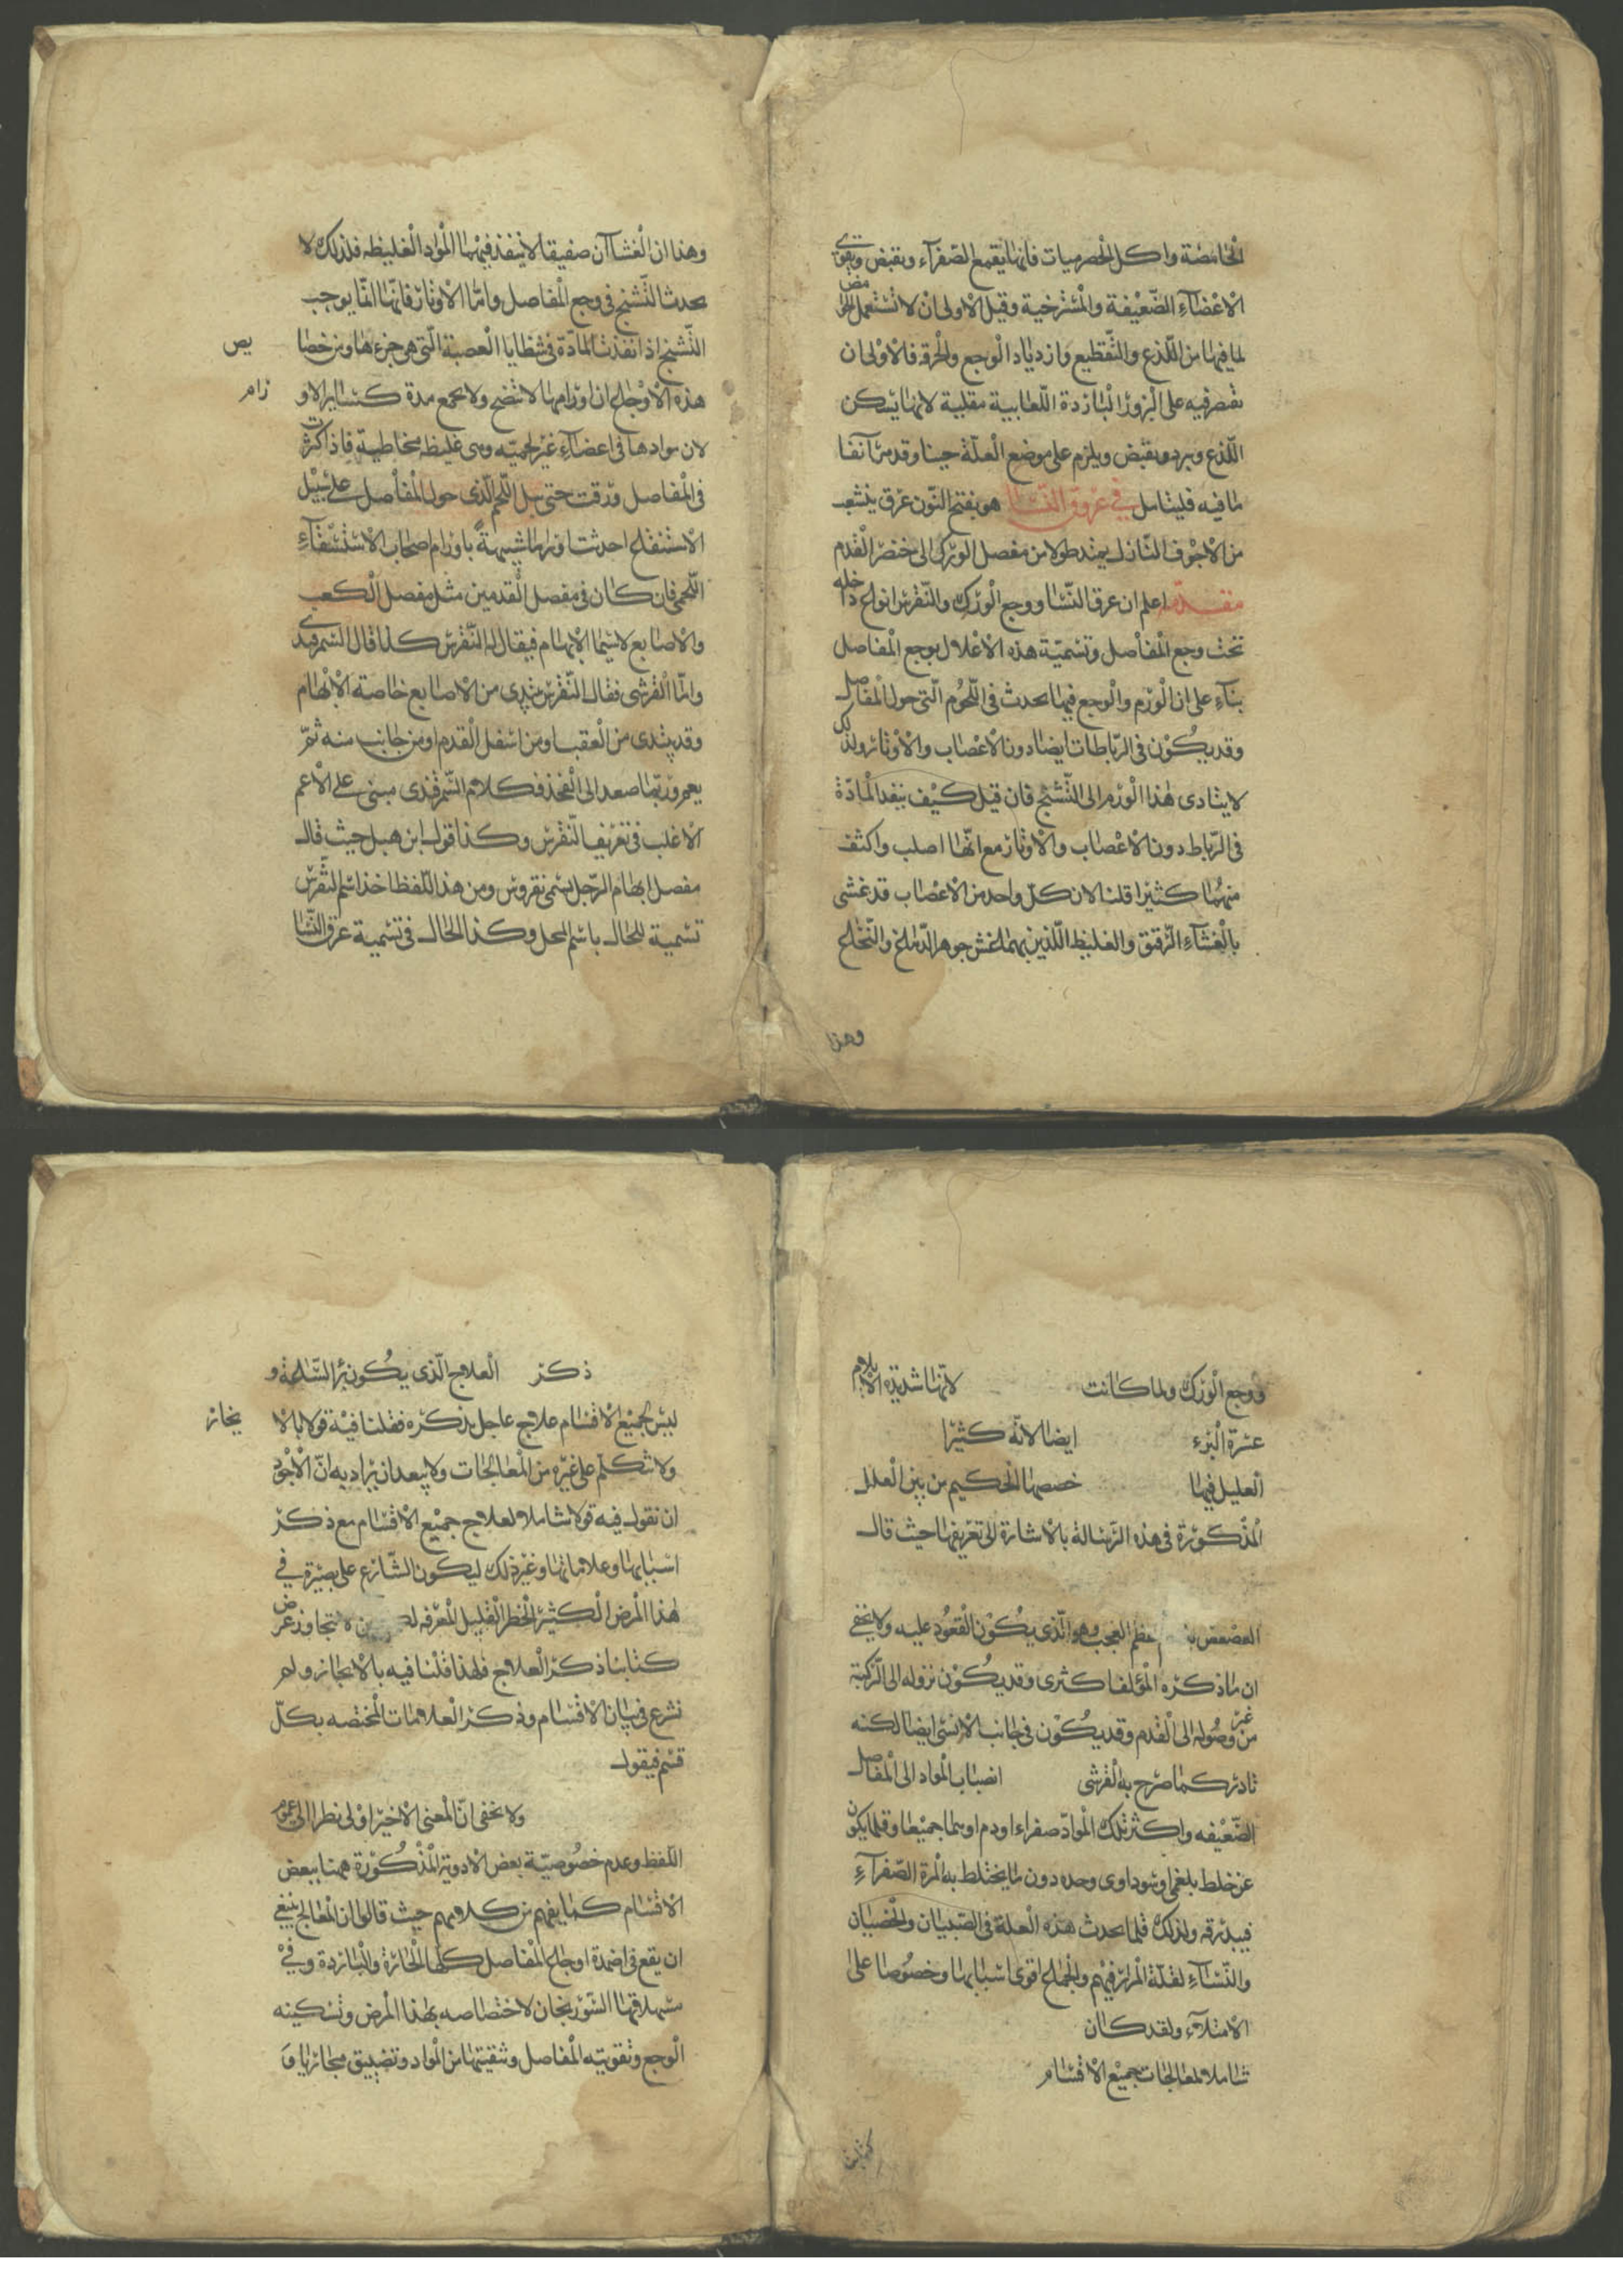 الحامضة واكل الحصرميات فانها يقمع الصفراء ويقبض ويقوى
الاعضاء الضعيفة والمسترخية وقيل الاولى ان لا تستعمل الحوامض
لما فيها من اللذع والتقطيع وازدياد الوجع والحرقة فالاولى ان
نقصر فيه على البزور الباردة اللعابية مقلية لانها يسكن
اللذع ويبرد ويقبض ويلزم على موضع العلة حينا وقد مر آنفا
ما فيه فليتامل في عروق النسا هو بفتح النون عرق ينشعب
من الاجوف النازل يمتد طولا من مفصل الورك الى خنصر القدم
مقدمة اعلم ان عرق النسا ووجع الورك والنقرس انواع داخلة
تحت وجع المفاصل وتسمية هذه الاعلال بوجع المفاصل
بناء على ان الورم والوجع فيها يحدث في اللحوم التي حول المفاصل
وقد يكون في الرباطات ايضا دون الاعصاب والاوتار ولذلك
لا يتادى هذا الورم الى التشنج فان قيل كيف ينفد المادة
في الرباط دون الاعصاب والاوتار مع انها اصلب واكثف
منهما كثيرا قلنا لان كل واحد من الاعصاب قد غشى
بالغشاء الرقيق والغليظ اللذين بهما غشى جوهر الدماغ والنخاع
وهذا
وهذا ان الغشاآن صفيقا لا ينفذ فيهما المواد الغليظه فلذلك لا
يحدث التشنج في وجع المفاصل واما الاوتار فانها انما يوجب
التشنج اذا نفذت المادة في شظايا العصبة التي هي جزء ها ومن خصا
يص
هذه الاوجاع ان اورامها لا تنضج ولا يجمع مدة كساير الاو
رام
لان موادها في اعضاء غير لحمية وهى غليظه مخاطية فاذا كثرت
في المفاصل ورقت حتى بل اللحم الذي حول المفاصل على سبيل
الاستنقاع احدثت اورما شبيهة باورام اصحاب الاستسقاء
اللحمى فان كان في مفصل القدمين مثل مفصل الكعب
والاصابع لا سيما الابهام فيقال له النقرس كذا قال السمرقندى
واما القرشى فقال النقرس يبتدى من الاصابع خاصة الابهام
وقد يبتدى من العقب او من اسفل القدم او من جانب منه ثم
يعم وربما صعد الى الفخذ فكلام السمرقندى مبنى على الاعم
الاغلب في تعريف النقرس وكذا قول ابن هبل حيث قال
مفصل ابهام الرجل يسمى نقروس ومن هذا اللفظ اخذ اسم النقرس
تسمية للحال باسم المحل وكذا الحال في تسمية عرق النسا
ووجع الورك ولما كانت لانها شديدة الايلام
عسرة البرء ايضا لانه كثيرا
العليل فيها خصصها الحكيم من بين العلل
المذكورة في هذه الرسالة بالاشارة الى تعريفها حيث قال
العصعص عظم العجب وهو الذي يكون القعود عليه ولا يخفى
ان ما ذكره المؤلف اكثرى وقد يكون نزوله الى الركبة
من غير وصوله الى القدم وقد يكون في جانب الانسى ايضا لكنه
نادر كما صرح به القرشى انصباب المواد الى المفاصل
الضعيفه واكثر تلك المواد صفراء او دم او هما جميعا وقلما يكون
عن خلط بلغمى او سوداوى وحده دون ما يختلط به المرة الصفراء
فيبدرقه ولذلك قلما يحدث هذه العلة في الصبيان والخصيان
والنساء لقلة المرار فيهم والجماع اقوى اسبابها وخصوصا على
الامتلاء ولقد كان
شاملا لمعالجات جميع الاقسام
ذكر العلاج الذي يكون برأ الساعة و
ليس لجميع الاقسام علاج عاجل يذكره فقلنا فيه قولا بالا
يجاز
ولا نتكلم على غيره من المعالجات ولا يبعد ان يراد به ان الاجود
ان نقول فيه قولا شاملا لعلاج جميع الاقسام مع ذكر
اسبابها وعلاماتها وغير ذلك ليكون الشارع على بصيرة في
هذا المرض الكثير الخطر القليل المعرفه لا نتجاوز غرض
كتابنا ذكر العلاج فلهذا قلنا فيه بالايجاز ولم
نشرع في بيان الاقسام وذكر العلامات المختصه بكل
قسم فيقول
ولا يخفى ان المعنى الاخير اولى نظرا الى عموم
اللفظ وعدم خصوصية بعض الادوية المذكورة ههنا ببعض
الاقسام كما يفهم من كلامهم حيث قالوا ان المعالج ينبغى
ان يقع في اضمدة اوجاع المفاصل كلها الحارة والباردة وفي
مسهلاتها السورنجان لاختصاصه بهذا المرض وتسكينه
الوجع وتقويته المفاصل وتنقيتها من المواد وتضييق مجاريها و